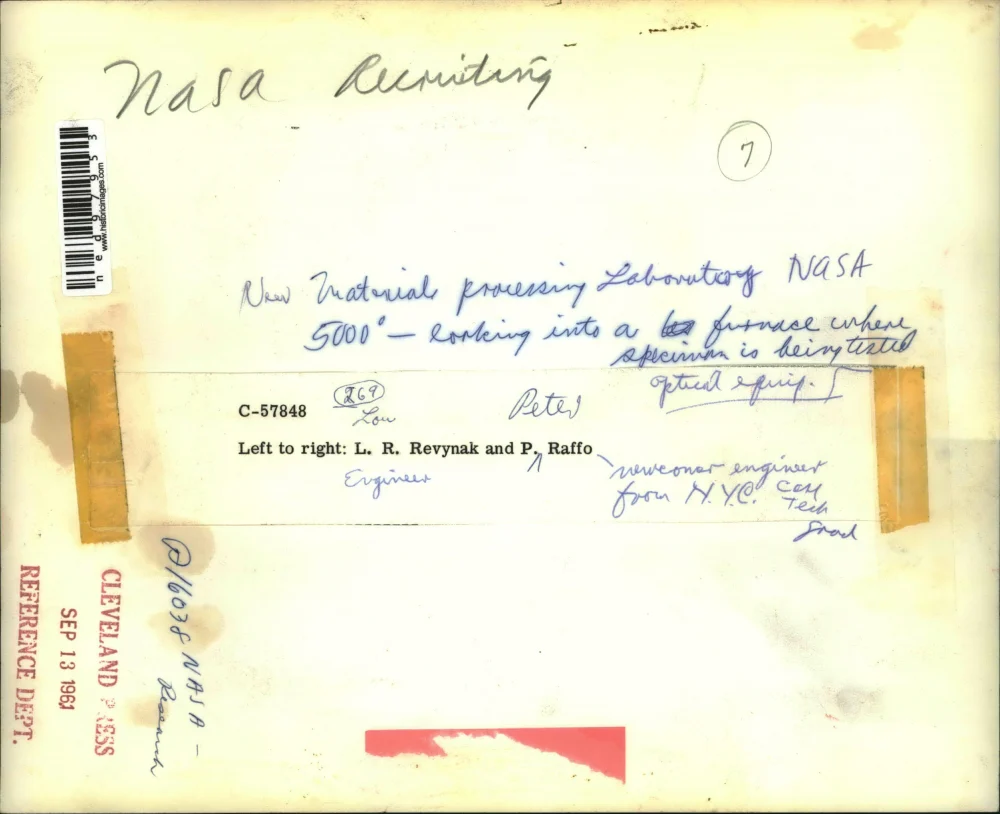 Nasa Recruiting
7
ned97953
www.historicimages.com
New Materials processing Laboratory NASA
5000° – looking into a furnace where
specimen is being tested
optical equip.
C-57848
269
Lou
Peter
Left to right: L. R. Revynak and P. Raffo
Engineer
newcomer engineer
from N.Y.C. Case
Tech
Grad
@16038 NASA –
Research
CLEVELAND PRESS
SEP 13 1961
REFERENCE DEPT.